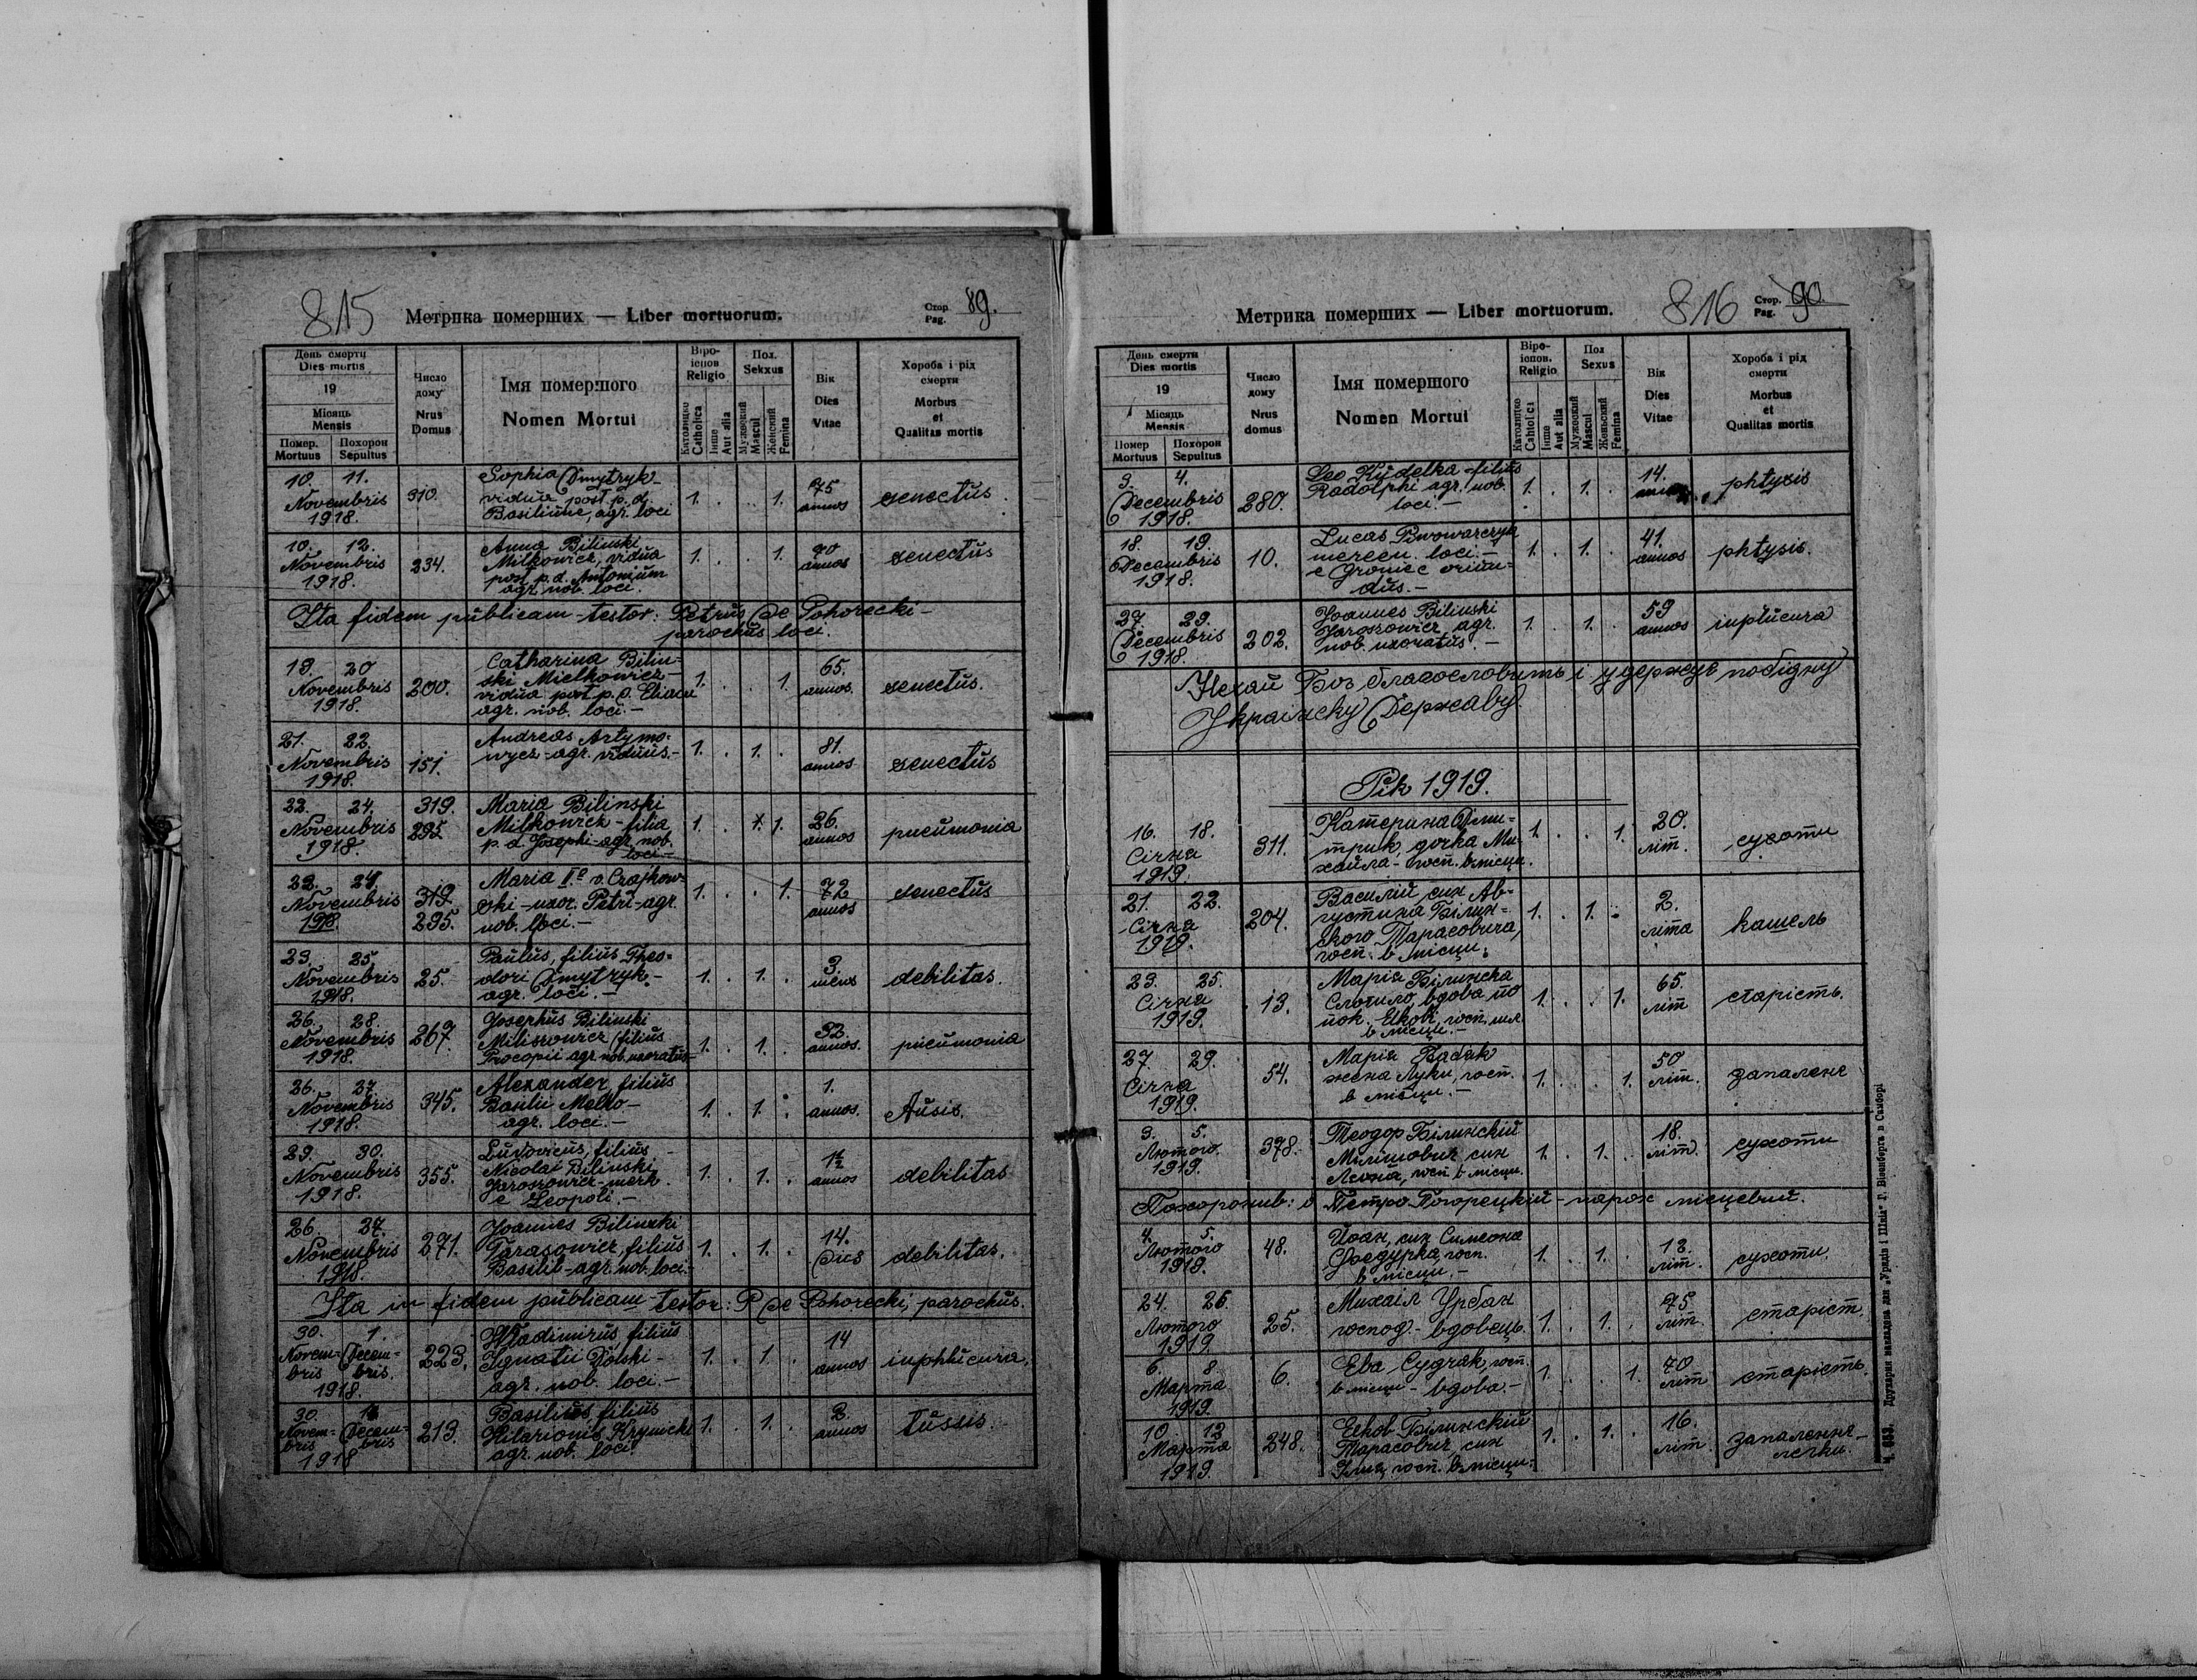 815
Метрика померших — Liber mortuorum.
Стор. Pag. 89.
День смерти
Dies mortis
19
Місяць
Mensis
Помер. Похорон
Mortuus Sepultus
Число
дому
Nrus
Domus
Імя помершого
Nomen Mortui
Віро-
існов
Religio
Католицко
Catholica
Інше
Aut alia
Пол.
Sekxus
Мужеский
Mascul
Женский
Femina
Вік
Dies
Vitae
Хороба і рід
смерти
Morbus
et
Qualitas mortis
10. 11.
Novembris
1918.
310.
Sophia Dmytryk
vidua post p. d.
Basilium, agr. loci
1. . . 1.
75
annos
senectus
10. 12.
Novembris
1918.
234.
Anna Bilinski
Milkowicz, vidua
post p. d. Antonium
agr. nob. loci.
1. . . 1.
70
annos
senectus
Ita fidem publicam testor: Petrus de Pohorecki
parochus loci.
19. 20
Novembris
1918.
200.
Catharina Bilin-
ski Mielkowicz
vidua post p. d. Eliam
agr. nob. loci.
1. . . 1.
65.
annos.
senectus.
21. 22.
Novembris
1918.
151.
Andreas Artymo-
wycz agr. viduus.
1. . 1. .
81.
annos
senectus
22. 24.
Novembris
1918.
319.
295
Maria Bilinski
Milkowicz - filia
p. d. Josephi agr. nob.
loci
1. . 1. 1.
26.
annos
pneumonia
22. 24.
Novembris
1918.
319
295.
Maria II.o v. Czajkow-
ski - uxor. Petri - agr.
nob. loci.
1. . . 1.
72
annos
senectus
23. 25.
Novembris
1918.
25.
Paulus, filius Theo-
dori Dmytryk
agr. loci.
1. . 1. .
3.
mens
debilitas.
26. 28.
Novembris
1918.
267.
Josephus Bilinski
Miliszowicz filius
Procopii agr nob. uxoratus
1. . 1. .
32
annos.
pneumonia
26. 27
Novembris
1918.
345.
Alexander, filius
Basilii Melko
agr. loci.
1. . 1. .
1.
annos.
tusis.
29. 30.
Novembris
1918.
355.
Ludovicus, filius
Nicolai Bilinski
Jaroszowicz - merk.
e Leopoli.
1. . 1. .
1½
annos
debilitas
26. 27.
Novembris
1918.
271.
Joannes Bilinski
Tarasowicz, filius
Basilii - agr. nob. loci.
1. . 1. .
14.
dies
debilitas.
Ita in fidem publicam testor: P. de Pohorecki, parochus.
30. 1.
Novem- Decem-
bris bris.
1918.
223.
Wladimirus, filius
Ignatii Polski
agr. nob. loci.
1. . 1. .
14
annos
30.
Novem- Decem-
bris bris
1918
213.
Basilius, filius
Hilarionis Krynicki
agr. nob. loci
1. . 1. .
2.
annos
tussis.
Метрика померших — Liber mortuorum.
816
Стор. Pag. 90.
День смерти
Dies mortis
19
Місяць
Mensis
Помер Похорон
Mortuus Sepultus
Число
дому
Nrus
domus
Імя помершого
Nomen Mortui
Віро-
іспов.
Religio
Католицко
Cahtolica
Інше
Aut alia
Пол
Sexus
Мужеский
Mascul
Женьский
Femina
Вік
Dies
Vitae
Хороба і рід
смерти
Morbus
et
Qualitas mortis
3. 4.
Decembris
1918.
280.
Leo Kudelka filius
Radolphi agr. nob.
loci.
1. . 1. .
14.
phtysis
18. 19.
Decembris
1918.
10.
Lucas Piwowarczyk
mercen. loci.
e Groniec oriun-
dus.
1. . 1. .
41.
annos
phtysis.
27. 29.
Decembris
1918.
202.
Joannes Bilinski
Jaroszowicz agr.
nob. uxoratus.
1. . 1. .
59
annos
Нехай Бог благословить і удержує побідну
Українску Державу.
Рік 1919.
16. 18.
Січня
1919.
311.
Катерина Дми-
трик, дочка Ми-
хайла - госп. в місци.
1. . . 1.
20.
літ.
сухоти
21. 22.
Січня
1919.
204.
Василій син Ав-
густина Білин-
ского Тарасовича,
госп. в місци.
1. . 1. .
2.
літа
кашель
23. 25.
Січня
1919.
13.
Марія Білинска
вдова по
пок. Елкові, госп.
в місци.
1. . . 1.
65.
літ
старість.
27. 29.
Січня
1919.
54.
Марія Бабяк
жена Луки, госп.
в місци.
1. . . 1.
50
літ.
запалене
3. 5.
Лютого
1919.
378.
Теодор Білинскій
Мілішович син
Леона, госп в місци.
1. . 1. .
18.
літ
сухоти
Похоронив: о Петро Погорецкий - парох місцевий.
4. 5.
Лютого
1919.
48.
Йоан, син Симеона
Федурка, госп.
в місци.
1. . 1. .
літ.
сухоти.
24. 26.
Лютого
1919.
25.
Михаіл Урбан
господ. - вдовець.
1. . 1. .
75
літ.
старіст
6. 8
Марта
1919.
6.
Ева Судчак, госп.
в місци - вдова.
1. . . 1.
70
літ
старість.
10 12
Марта
1919.
248.
Елков Білинскій
Тарасович, син
Ілиі, госп. в місци.
1. . 1. .
16.
літ.
запаленнє
легких.
Ч. 653. Друкарня накладова для „Урядів і Шкіл" Р. Вісенберга в Самборі